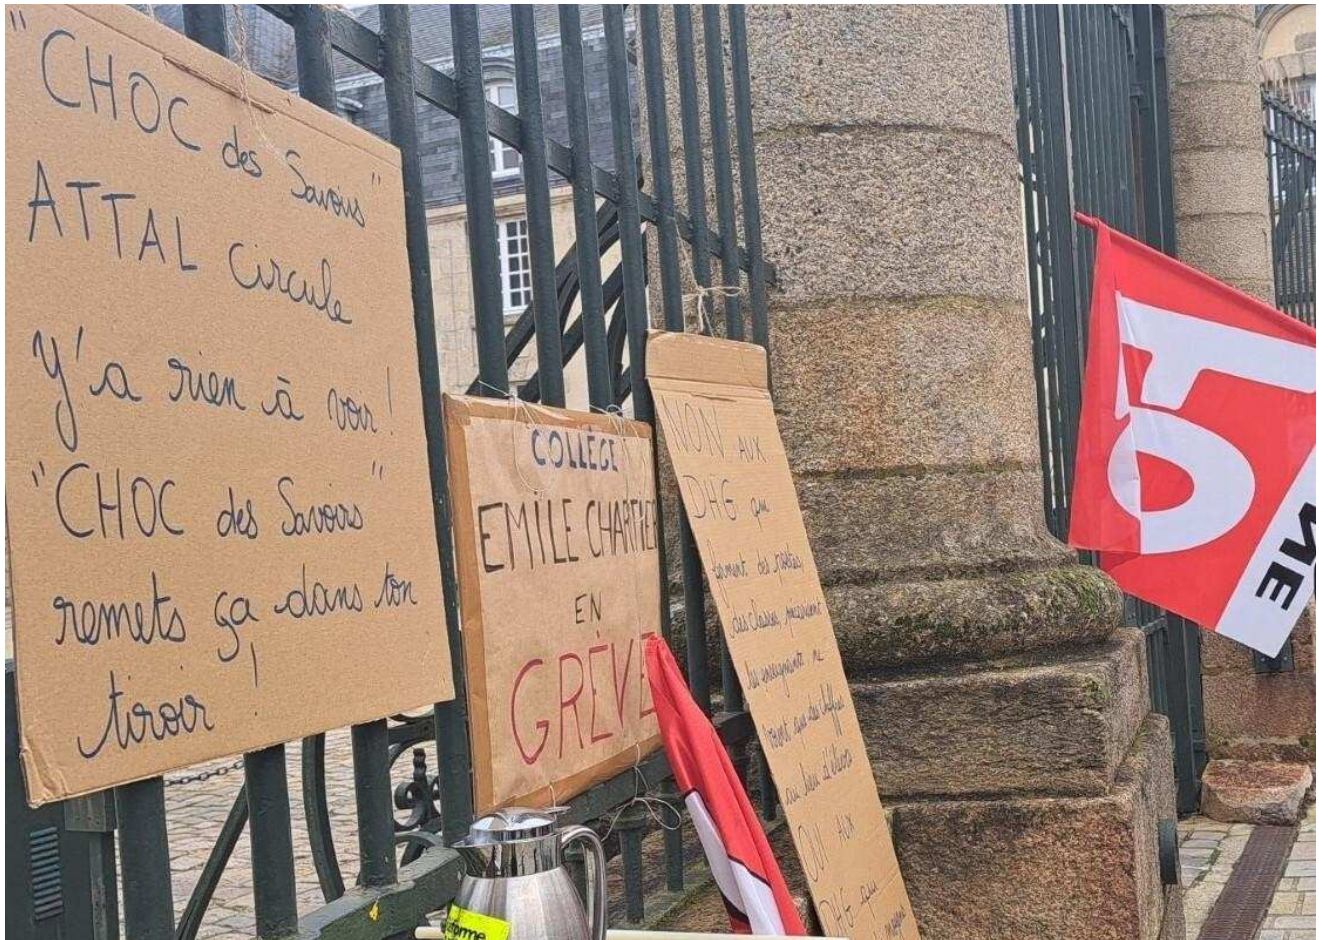 "CHOC des Savoirs"
ATTAL Circule
y'a rien à voir !
"CHOC des Savoirs"
remets ça dans ton
tiroir !
COLLÈGE
EMILE CHARTIER
EN
GRÈVE
NON AUX
DHG qui
ferment des postes
des classes, méprisent
les enseignants ne
voient que des chiffres
au lieu d'élèves
OUI AUX
DHG qui
FO
ME
forme